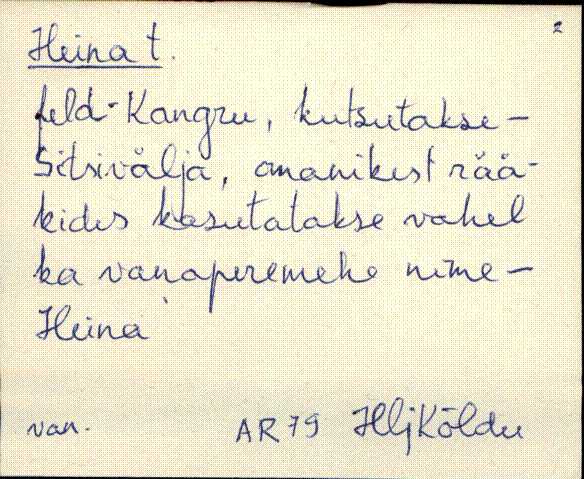 2
Heina t.
feld-Kangru, kutsutakse-
Sitsivälja, omanikest rää-
kides kasutatakse vahel
ka vanaperemehe nime-
Heina
van. AR 79 HljKõldu